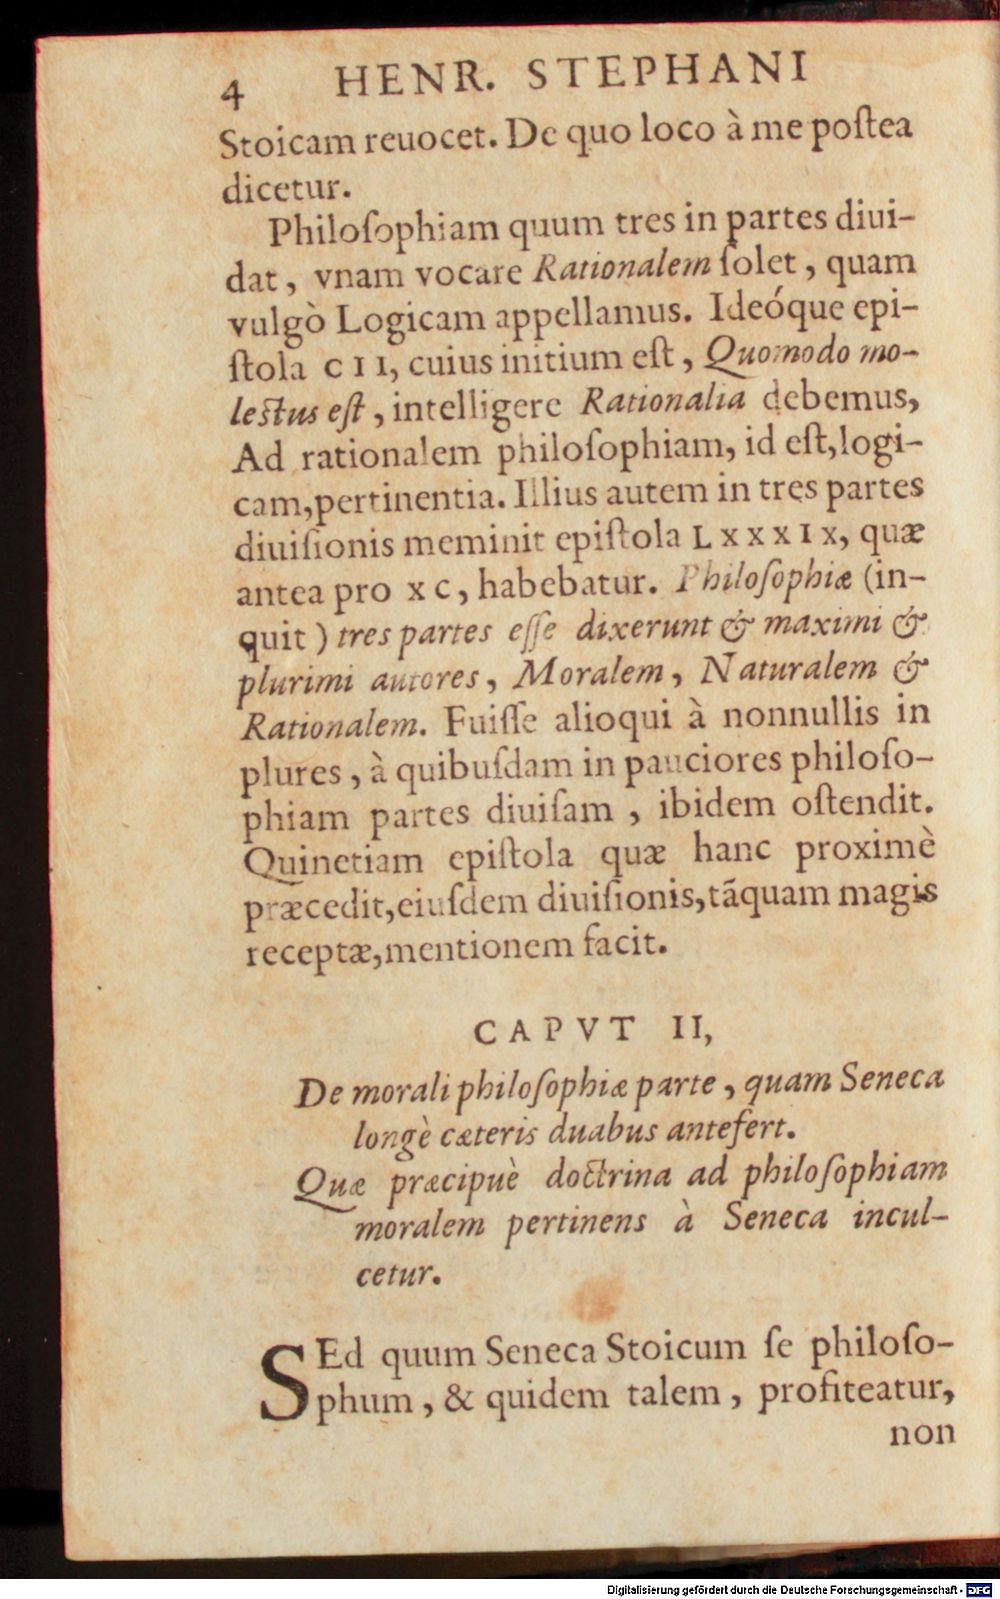 4 HENR. STEPHANI
Stoicam reuocet. De quo loco à me poſtea
dicetur.
Philoſophiam quum tres in partes diui-
dat, vnam vocare Rationalem ſolet, quam
vulgò Logicam appellamus. Ideóque epi-
ſtola CII, cuius initium eſt, Quomodo mo-
leſtus eſt, intelligere Rationalia debemus,
Ad rationalem philoſophiam, id eſt, logi-
cam, pertinentia. Illius autem in tres partes
diuiſionis meminit epiſtola LXXXIX, quæ
antea pro XC, habebatur. Philoſophiæ (in-
quit) tres partes eſſe dixerunt & maximi &
plurimi autores, Moralem, Naturalem &
Rationalem. Fuiſſe alioqui à nonnullis in
plures, à quibuſdam in pauciores philoſo-
phiam partes diuiſam, ibidem oſtendit.
Quinetiam epiſtola quæ hanc proximè
præcedit, eiuſdem diuiſionis, tãquam magis
receptæ, mentionem facit.
CAPVT II,
De morali philoſophiæ parte, quam Seneca
longè cæteris duabus antefert.
Quæ præcipuè doctrina ad philoſophiam
moralem pertinens à Seneca incul-
cetur.
SEd quum Seneca Stoicum ſe philoſo-
phum, & quidem talem, profiteatur,
non
Digitalisierung gefördert durch die Deutsche Forschungsgemeinschaft - DFG